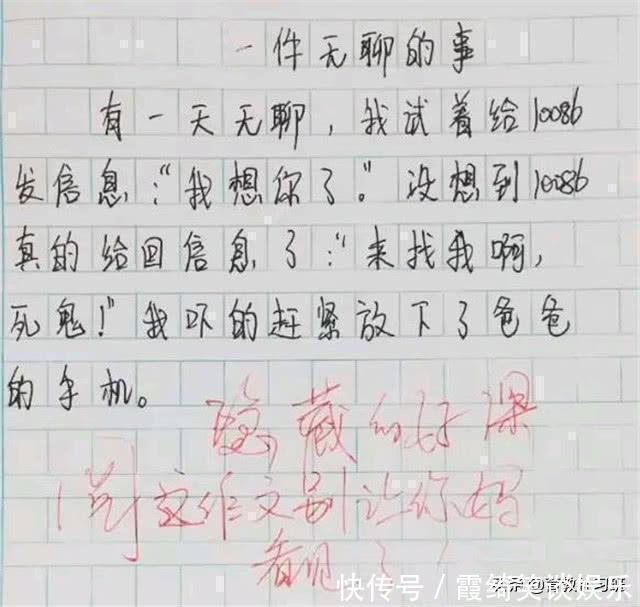 一件无聊的事
有一天无聊，我试着给10086
发信息：“我想你了。”没想到10086
真的给回信息了：“来找我啊，
死鬼！”我吓的赶紧放下了爸爸
的手机。
隐藏的好深
这作文别让你妈
看见！！
快传号 / 霞绮笑谈娱乐